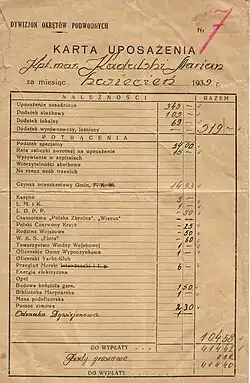 DYWIZJON OKRĘTÓW PODWODNYCH
Nr. 7
KARTA UPOSAŻENIA
Kpt. mar. Kadulski Marian
za miesiąc kwiecień 1939 r.
NALEŻNOŚCI RAZEM
Uposażenie zasadnicze 349 —
Dodatek służbowy
Dodatek lokalny
Dodatek wyrównawczy, lotniczy — 519 —
POTRĄCENIA
Podatek specjalny
Rata zaliczki zwrotnej na uposażenie 15 —
Wyżywienie w szpitalach
Wierzytelności skarbowe
Na rzecz osób trzecich
Czynsz mieszkaniowy Gmin, F. K. W.
Kasyno
L. M. i K.
L. O. P. P.
Czasopisma „Polska Zbrojna", „Wiarus"
Polski Czerwony Krzyż
Rodzina Wojskowa 50
W. K. S. „Flota" 60
Towarzystwo Wiedzy Wojskowej 1 —
Oficerski Domy Wypoczynkowe 1 —
Oficerski Yacht-Klub
Przegląd Morski 6 —
Energia elektryczna
Opał
Budowa kościoła garn. 1 50
Biblioteka Marynarska 1 —
Mesa podoficerska
Pomoc zimowa 2 30
Odznaka Dywizjonowa
DO WYPŁATY
DO WYPŁATY